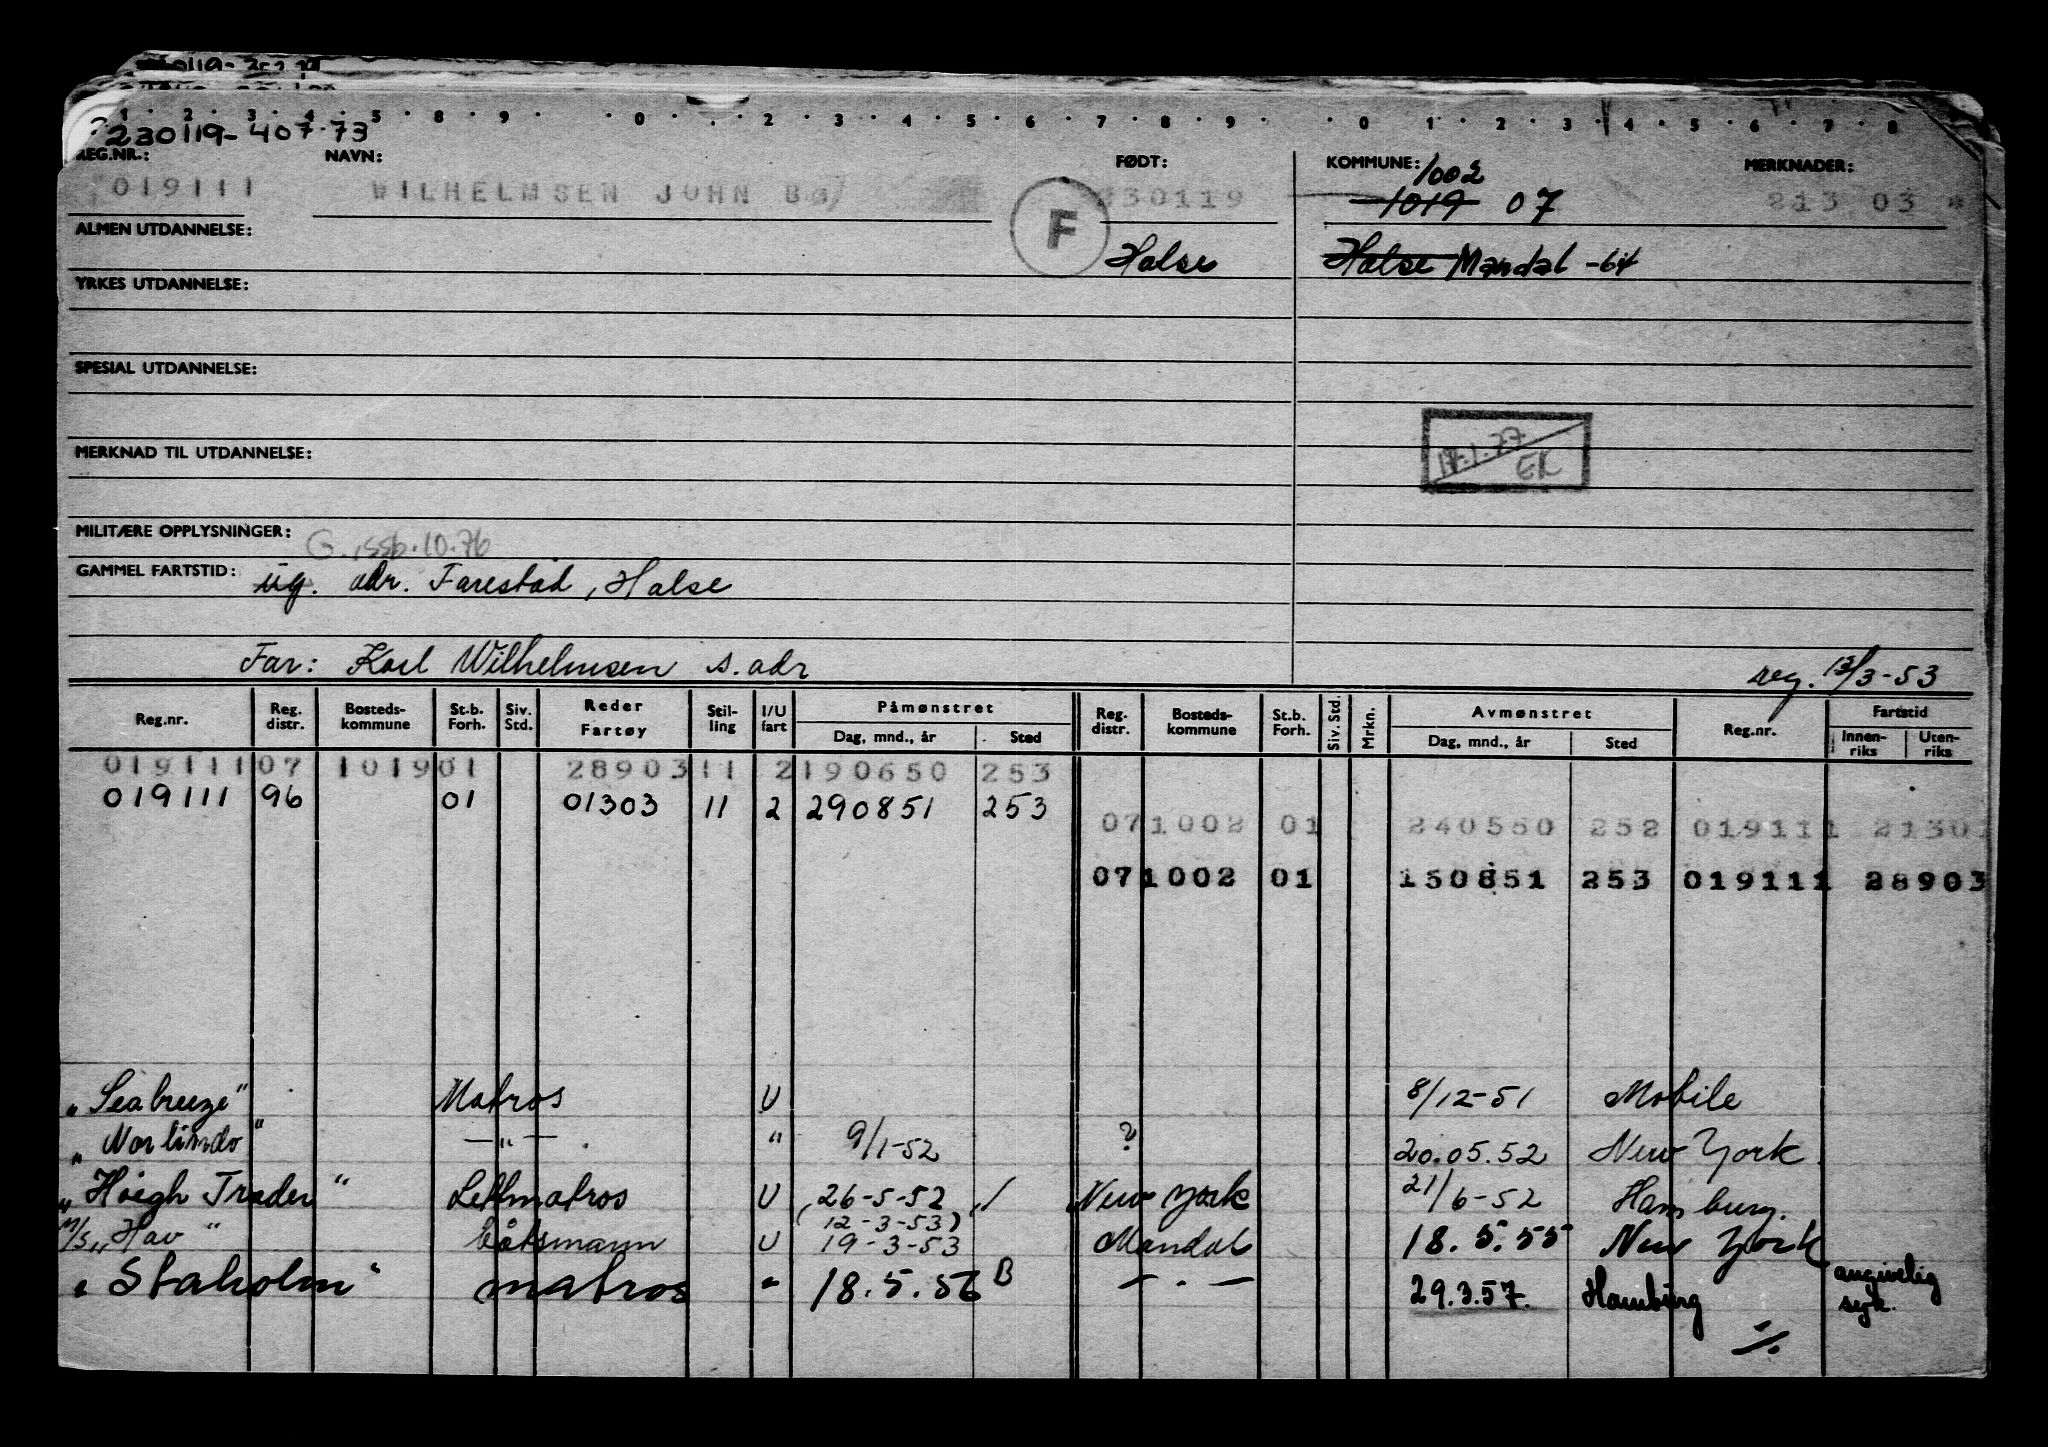 1 2 3 4 5 8 9 0 2 3 4 5 6 7 8 9 0 1 2 3 4 5 6 7 8
230119-407.73
REG.NR.: NAVN: FØDT: KOMMUNE: 1002 MERKNADER:
019111 WILHELMSEN JOHN BØ 230119 1019 07 213 03
ALMEN UTDANNELSE: F Halse Halse Mandal -64
YRKES UTDANNELSE:
SPESIAL UTDANNELSE:
MERKNAD TIL UTDANNELSE: 17.1.77 EK
MILITÆRE OPPLYSNINGER:
GAMMEL FARTSTID: ug. adr. Farestad, Halse
Far: Karl Wilhelmsen s. adr reg. 13/3-53
Reg.nr. Reg. distr. Bosteds-kommune St.b. Forh. Siv. Std. Reder Fartøy Stil-ling I/U fart Påmønstret Dag, mnd., år Sted Reg. distr. Bosteds-kommune St.b. Forh. Siv. Std. Mrkn. Avmønstret Dag, mnd., år Sted Reg.nr. Fartstid Innen-riks Uten-riks
019111 07 1019 01 28903 11 2 190650 253
019111 96 01 01303 11 2 290851 253
07 1002 01 240550 252 019111 21301
07 1002 01 150851 253 019111 28903
"Seabreeze" Matros U 8/12-51 Mobile
"Norlindo" —"— " 9/1-52 ? 20.05.52 New York.
"Höegh Trader" Lettmatros U 26-5-52 New York 21/6-52 Hamburg.
(12-3-53)
M/S "Hav" båtsmann U 19-3-53 Mandal 18.5.55 New York
"Staholm" matros " 18.5.56 B —.— 29.3.57. Hamburg angivelig syk.